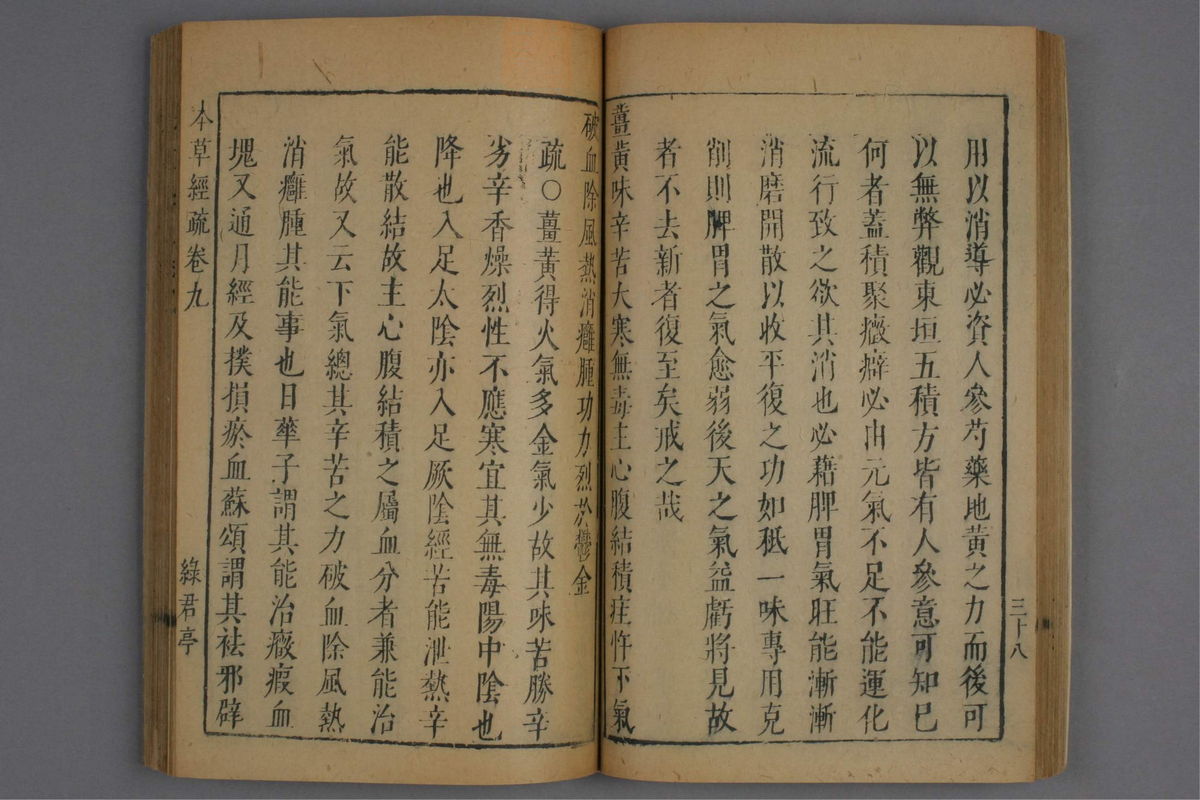 用以消導必資人參芍藥地黃之力而後可
以無弊觀東垣五積方皆有人參意可知已
何者蓋積聚癥癖必由元氣不足不能運化
流行致之欲其消也必藉脾胃氣旺能漸漸
消磨開散以收平復之功如秪一味專用克
削則脾胃之氣愈弱後天之氣益虧將見故
者不去新者復至矣戒之哉
薑黃味辛苦大寒無毒主心腹結積疰忤下氣
三十八
破血除風熱消癰腫功力烈於鬱金
疏〇薑黃得火氣多金氣少故其味苦勝辛
劣辛香燥烈性不應寒宜其無毒陽中陰也
降也入足太陰亦入足厥陰經苦能泄熱辛
能散結故主心腹結積之屬血分者兼能治
氣故又云下氣總其辛苦之力破血除風熱
消癰腫其能事也日華子謂其能治癥瘕血
塊又通月經及撲損瘀血蘇頌謂其祛邪辟
本草經疏卷九
綠君亭